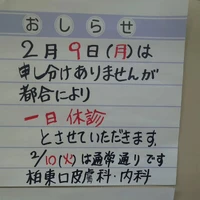 おしらせ
2月9日(月)は
申し分けありませんが
都合により
一日休診
とさせていただきます.
2/10(火)は通常通りです
柏東口皮膚科・内科